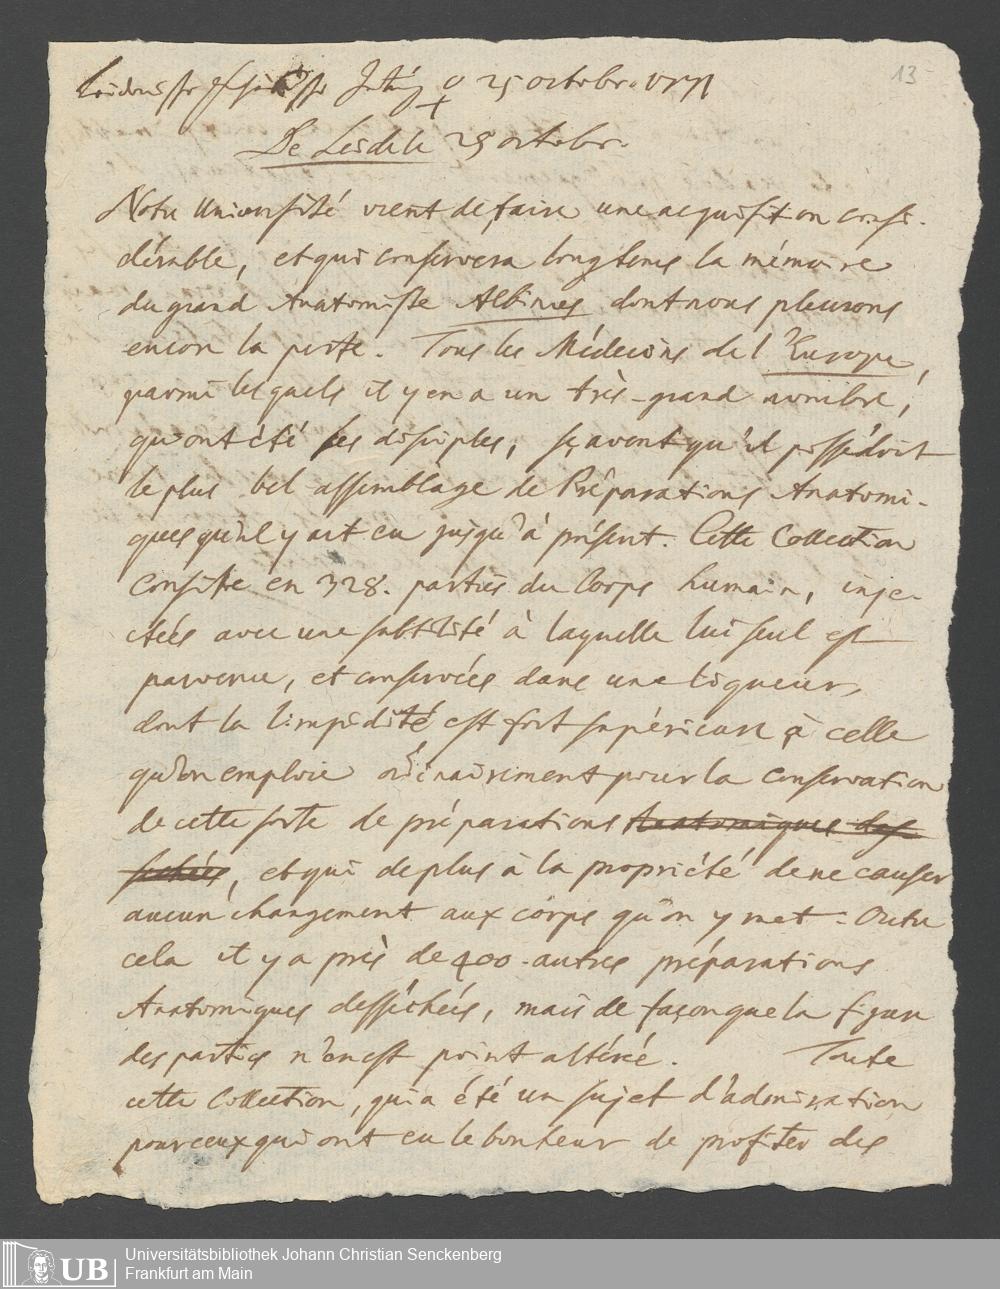 13
25 octobr. 1771
De Leide le 25 octobr.
Notre Université vient de faire une acquisition consi-
dérable, et qui conservera longtems la mémoire
du grand Anatomiste Albinus dont nous pleurons
encor la perte. Tous les Médecins de l'Europe,
parmi lesquels il y en a un très-grand nombre,
qui ont été ses disciples, sçavent qu'il possédoit
le plus bel assemblage de Préparations Anatomi-
ques qu'il y ait eu jusqu'à présent. Cette Collection
consiste en 328. parties du Corps humain, inje-
ctées avec une subtilité à laquelle lui seul est
parvenu, et conservées dans une liqueur,
dont la limpidité est fort supérieure à celle
qu'on emploie ordinairement pour la conservation
de cette sorte de préparations Anatomiques des-
sechées, et qui de plus a la propriété de ne causer
aucun changement aux corps qu'on y met. Outre
cela il y a près de 400. autres préparations
Anatomiques desséchées, mais de façon que la figure
des parties n'en est point altérée. Toute
cette Collection, qui a été un sujet d'admiration
pour ceux qui ont eu le bonheur de profiter des
UB Universitätsbibliothek Johann Christian Senckenberg
Frankfurt am Main